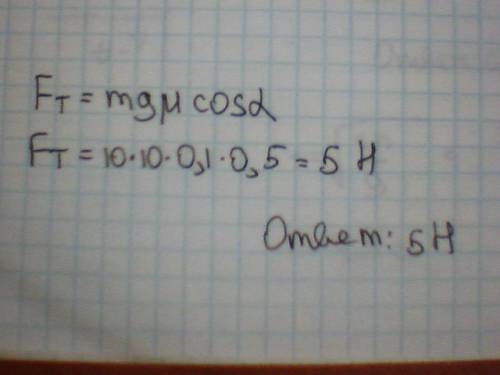 Fт = mgμ cosα
Fт = 10·10·0,1·0,5 = 5 Н
Ответ: 5Н